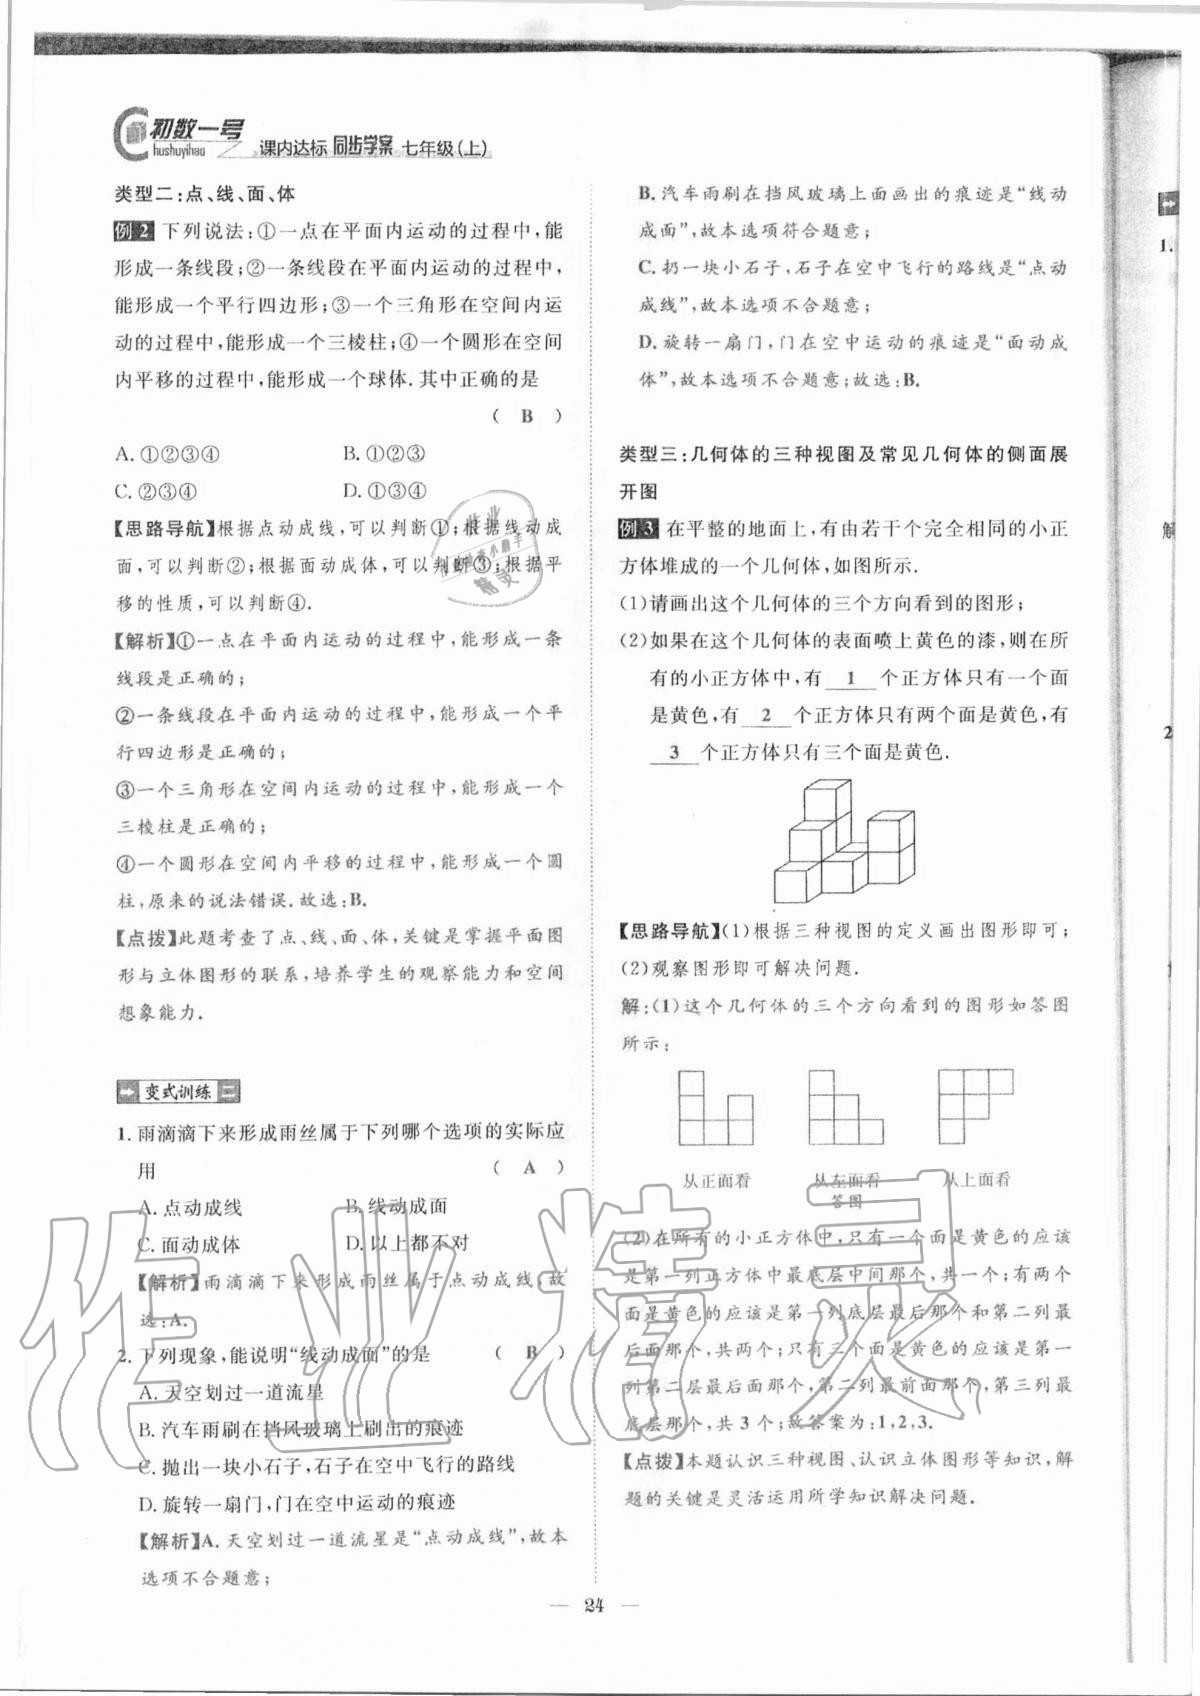 初数一号
Chushuyihao
课内达标 同步学案 七年级(上)
类型二:点、线、面、体
例2 下列说法:①一点在平面内运动的过程中,能
形成一条线段;②一条线段在平面内运动的过程中,
能形成一个平行四边形;③一个三角形在空间内运
动的过程中,能形成一个三棱柱;④一个圆形在空间
内平移的过程中,能形成一个球体.其中正确的是
( B )
A.①②③④ B.①②③
C.②③④ D.①③④
【思路导航】根据点动成线,可以判断①;根据线动成
面,可以判断②;根据面动成体,可以判断③;根据平
移的性质,可以判断④.
【解析】①一点在平面内运动的过程中,能形成一条
线段是正确的;
②一条线段在平面内运动的过程中,能形成一个平
行四边形是正确的;
③一个三角形在空间内运动的过程中,能形成一个
三棱柱是正确的;
④一个圆形在空间内平移的过程中,能形成一个圆
柱,原来的说法错误.故选:B.
【点拨】此题考查了点、线、面、体,关键是掌握平面图
形与立体图形的联系,培养学生的观察能力和空间
想象能力.
变式训练 二
1. 雨滴滴下来形成雨丝属于下列哪个选项的实际应
用 ( A )
A.点动成线 B.线动成面
C.面动成体 D.以上都不对
【解析】雨滴滴下来形成雨丝属于点动成线,故
选:A.
2. 下列现象,能说明“线动成面”的是 ( B )
A.天空划过一道流星
B.汽车雨刷在挡风玻璃上刷出的痕迹
C.抛出一块小石子,石子在空中飞行的路线
D.旋转一扇门,门在空中运动的痕迹
【解析】A.天空划过一道流星是“点动成线”,故本
选项不合题意;
B.汽车雨刷在挡风玻璃上面画出的痕迹是“线动
成面”,故本选项符合题意;
C.扔一块小石子,石子在空中飞行的路线是“点动
成线”,故本选项不合题意;
D.旋转一扇门,门在空中运动的痕迹是“面动成
体”,故本选项不合题意;故选:B.
类型三:几何体的三种视图及常见几何体的侧面展
开图
例3 在平整的地面上,有由若干个完全相同的小正
方体堆成的一个几何体,如图所示.
(1)请画出这个几何体的三个方向看到的图形;
(2)如果在这个几何体的表面喷上黄色的漆,则在所
有的小正方体中,有 1 个正方体只有一个面
是黄色,有 2 个正方体只有两个面是黄色,有
3 个正方体只有三个面是黄色.
【思路导航】(1)根据三种视图的定义画出图形即可;
(2)观察图形即可解决问题.
解:(1)这个几何体的三个方向看到的图形如答图
所示:
从正面看 从左面看 从上面看
答图
(2)在所有的小正方体中,只有一个面是黄色的应该
是第一列正方体中最底层中间那个,共一个;有两个
面是黄色的应该是第一列底层最后那个和第二列最
后面那个,共两个;只有三个面是黄色的应该是第一
列第二层最后面那个,第二列最前面那个,第三列最
底层那个,共3个;故答案为:1,2,3.
【点拨】本题认识三种视图、认识立体图形等知识,解
题的关键是灵活运用所学知识解决问题.
— 24 —
1.
解
2
作业精灵